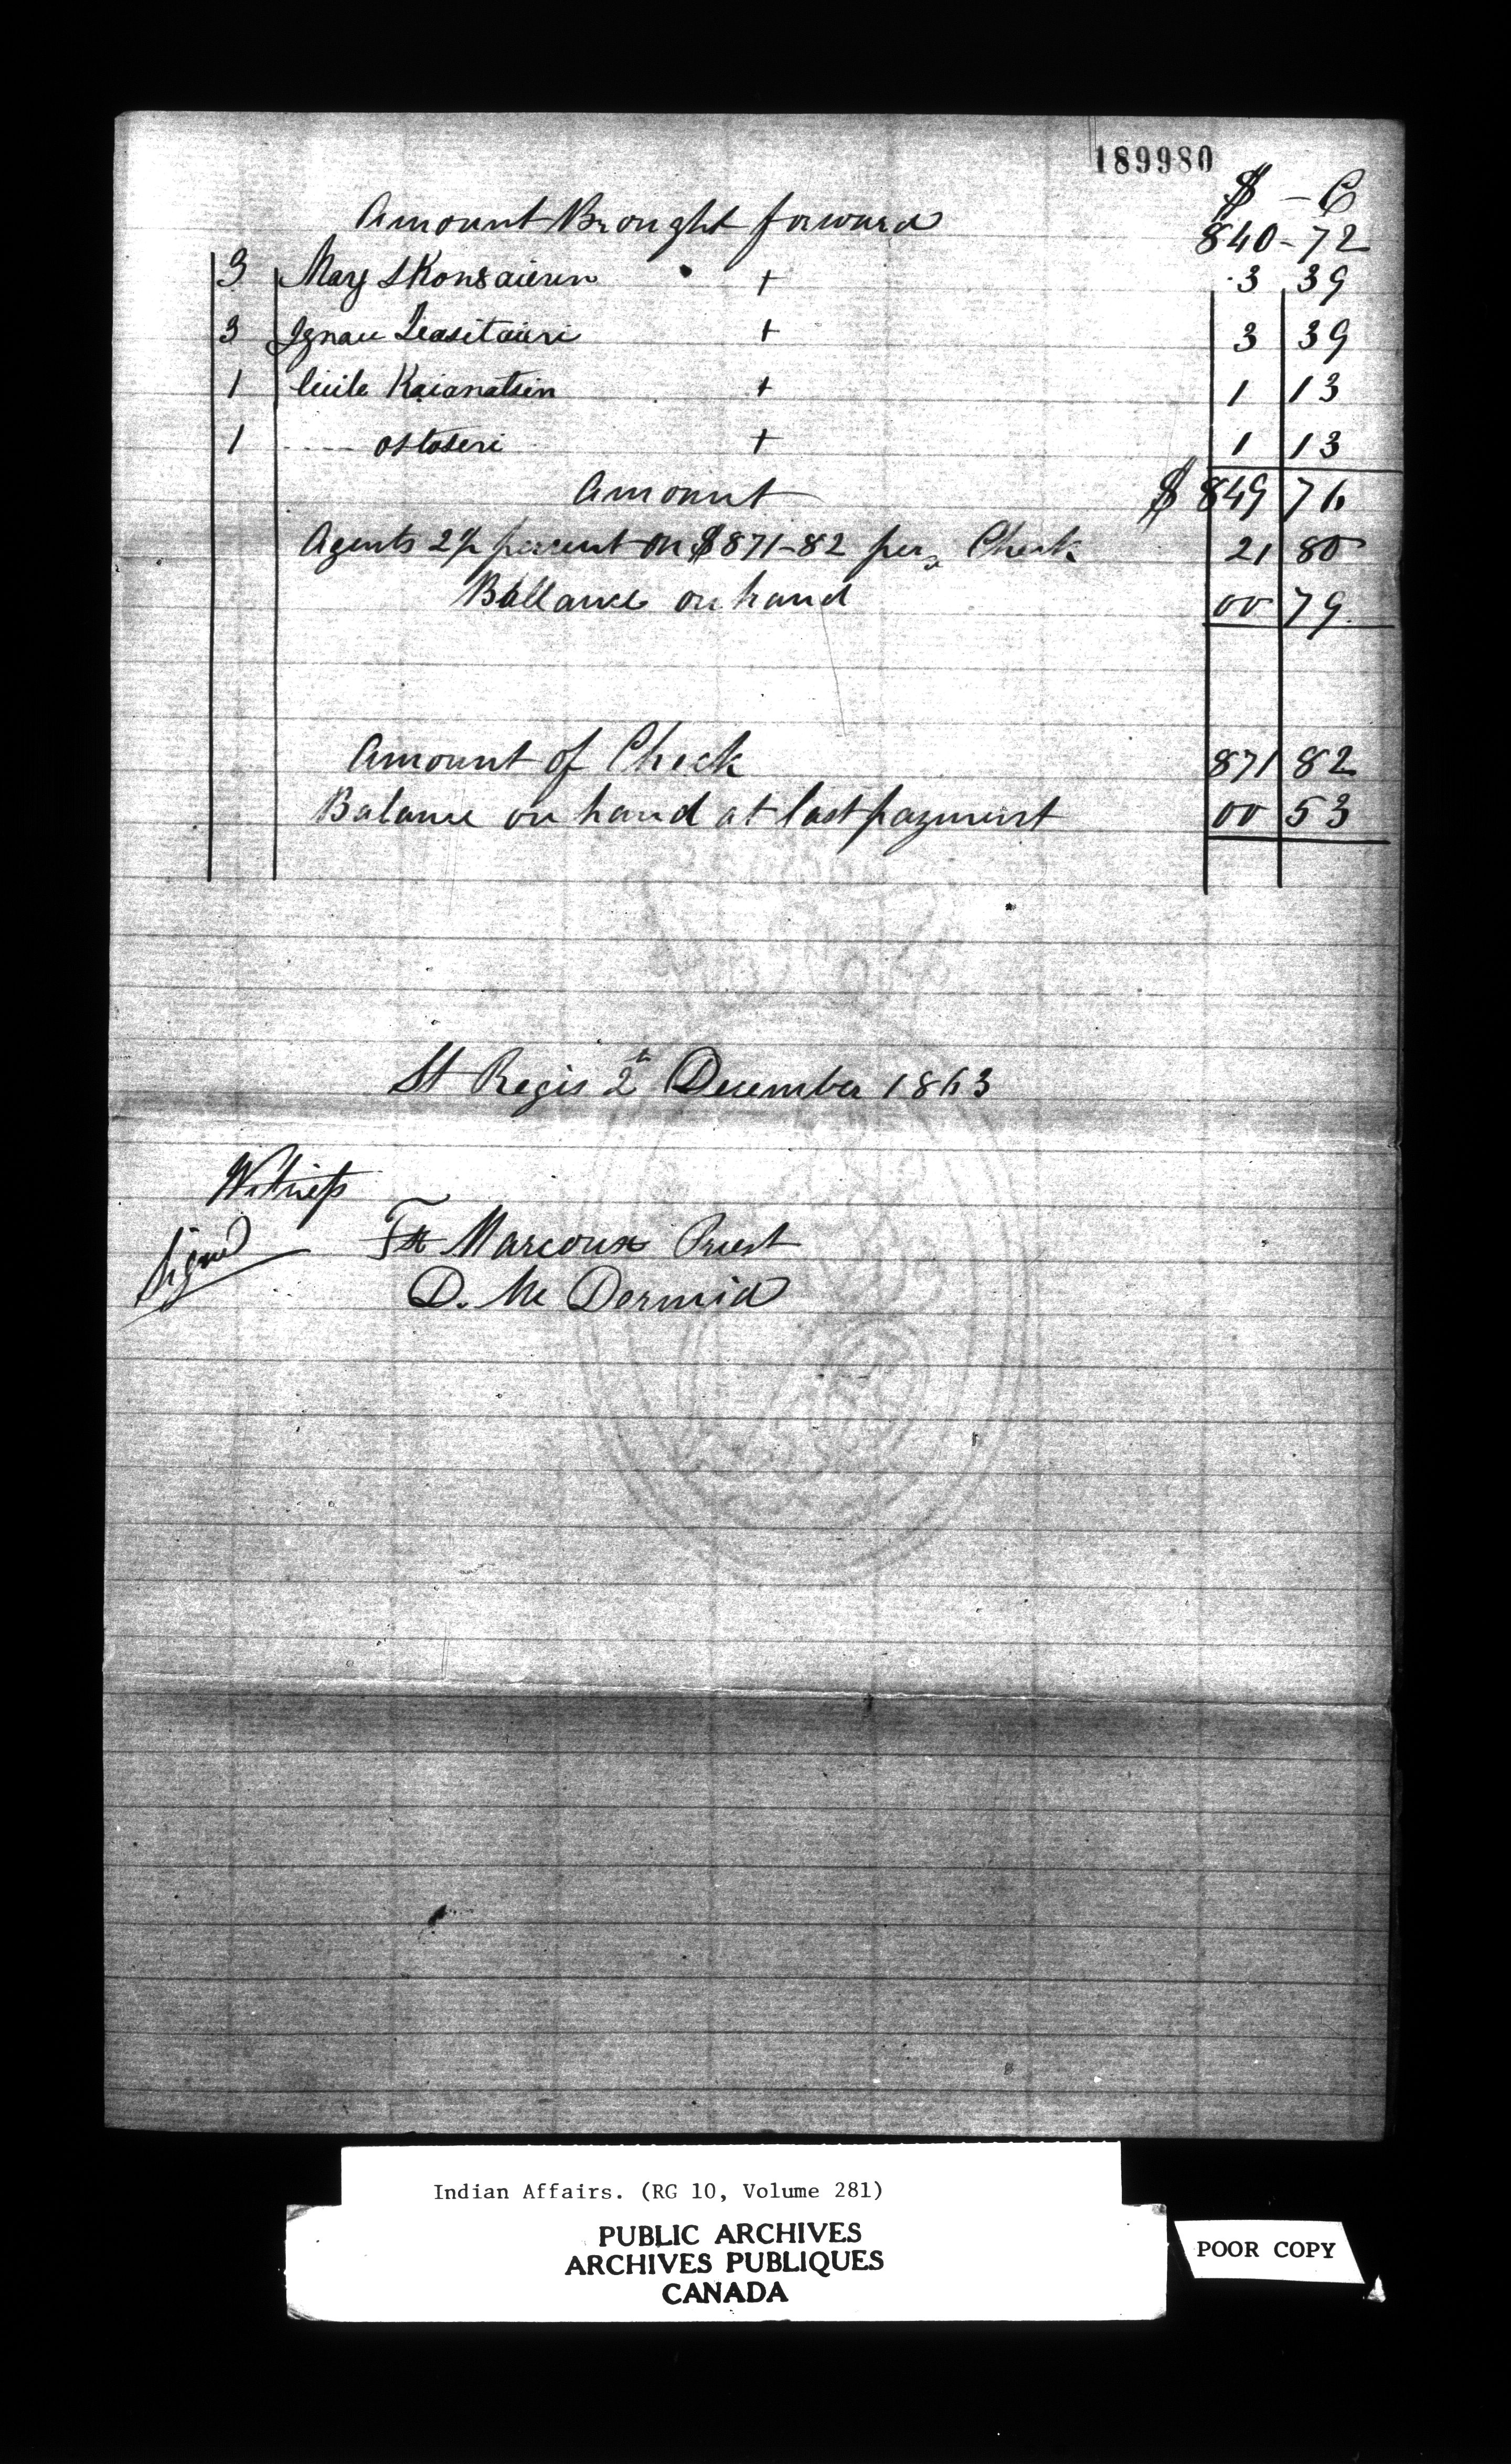 189980
$ - C
Amount Brought forward 840-72
3 Mary Skonsaieren + 3 39
3 Ignace Teasitaieri + 3 39
1 Cicile Kaianatsin + 1 13
1 ---- ostoseri + 1 13
Amount $ 849 76
Agents 2½ percent on $871-82 per Check 21 80
Ballance on hand 00 79
Amount of Check 871 82
Balance on hand at last payment 00 53
St Regis 2n December 1863
Witness
Signed Fx Marcoux Priest
D. Mc Dermid
Indian Affairs. (RG 10, Volume 281)
PUBLIC ARCHIVES
ARCHIVES PUBLIQUES
CANADA
POOR COPY